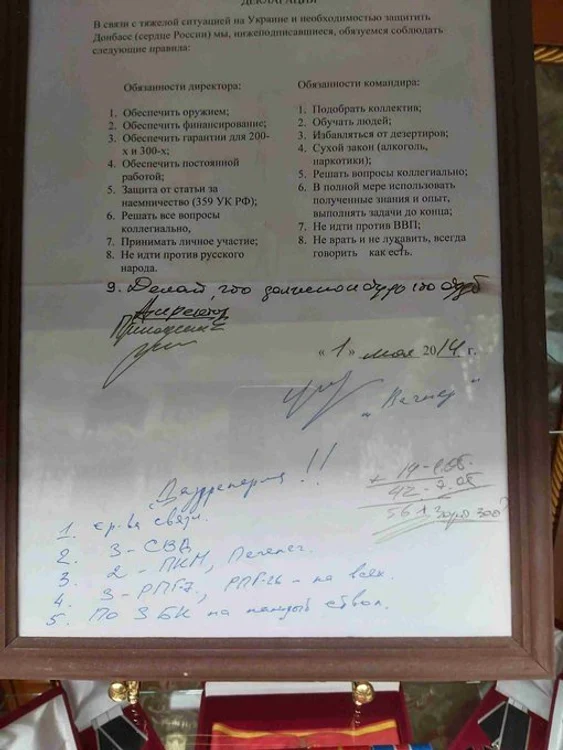 ДЕКЛАРАЦИЯ
В связи с тяжелой ситуацией на Украине и необходимостью защитить
Донбасс (сердце России) мы, нижеподписавшиеся, обязуемся соблюдать
следующие правила:
Обязанности директора:
1. Обеспечить оружием;
2. Обеспечить финансирование;
3. Обеспечить гарантии для 200-
х и 300-х;
4. Обеспечить постоянной
работой;
5. Защита от статьи за
наемничество (359 УК РФ);
6. Решать все вопросы
коллегиально,
7. Принимать личное участие;
8. Не идти против русского
народа.
Обязанности командира:
1. Подобрать коллектив;
2. Обучать людей;
3. Избавляться от дезертиров;
4. Сухой закон (алкоголь,
наркотики);
5. Решать вопросы коллегиально;
6. В полной мере использовать
полученные знания и опыт,
выполнять задачи до конца;
7. Не идти против ВВП;
8. Не врать и не лукавить, всегда
говорить как есть.
9. Делай, что должено и будь что будет
Директор
Пригожин
« 1 » мая 2014 г.
„Вагнер"
!!
+ 14-1.об.
42-7.об
56
1. ср-ва связи.
2. 3-СВД
3. 2-ПКМ, Печенег.
4. 3-РПГ-7, РПГ-26 - на всех.
5. По 3 БК на каждый ствол.